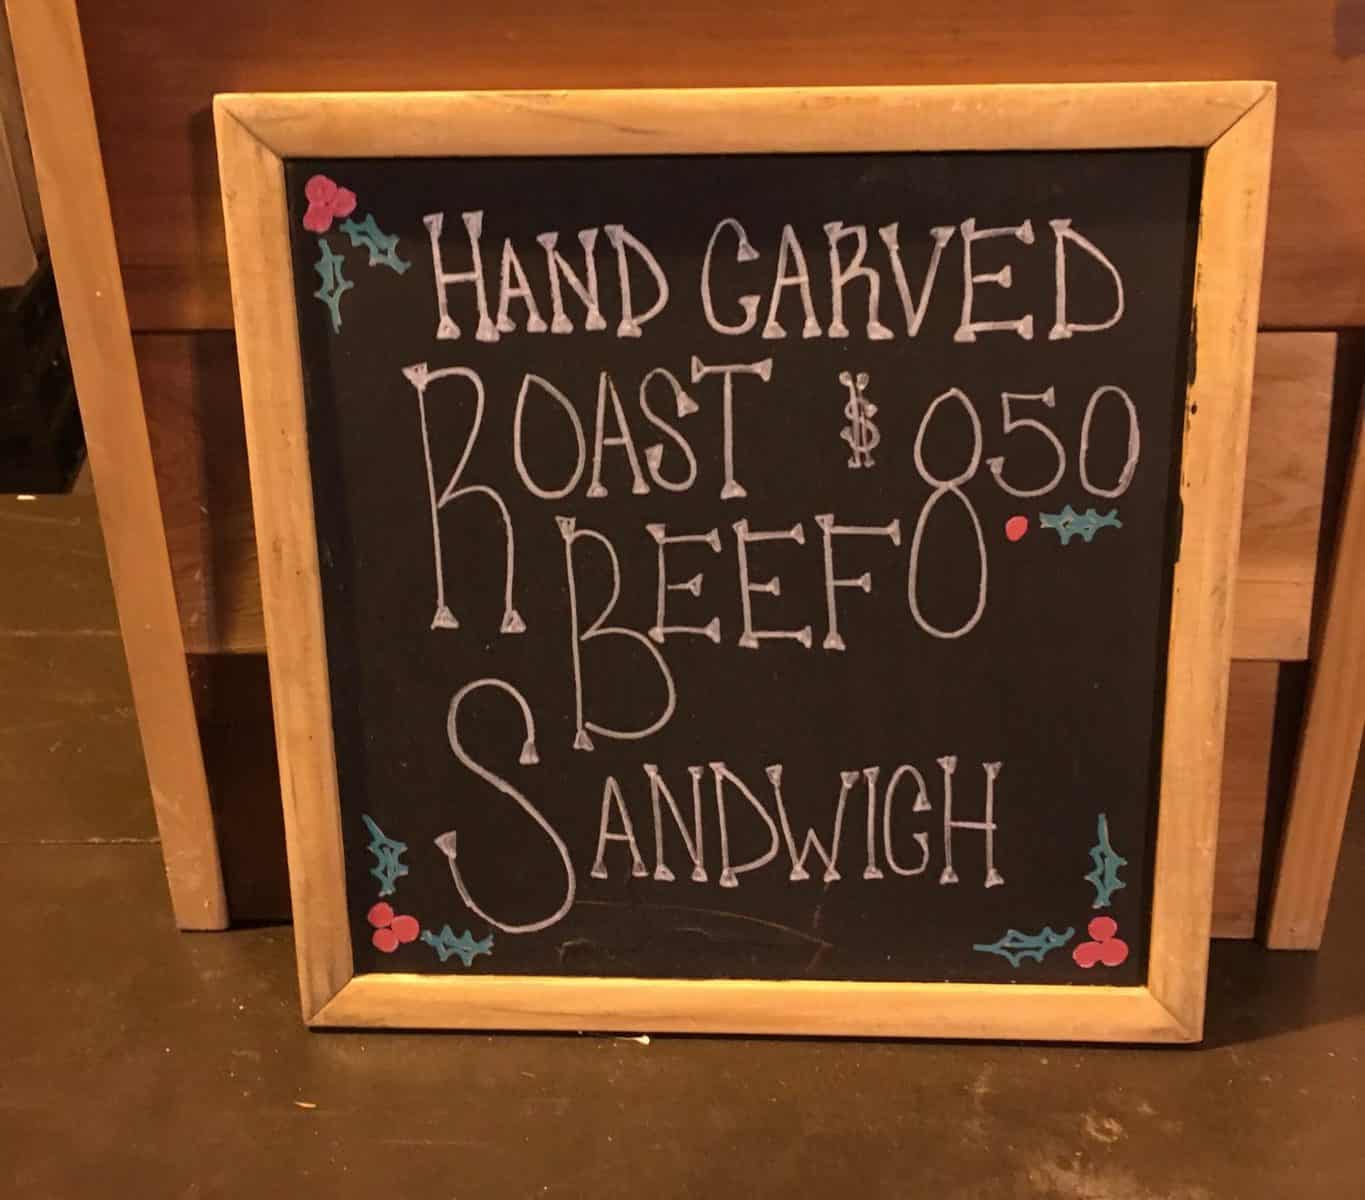 HAND CARVED
ROAST $850
BEEF
SANDWICH